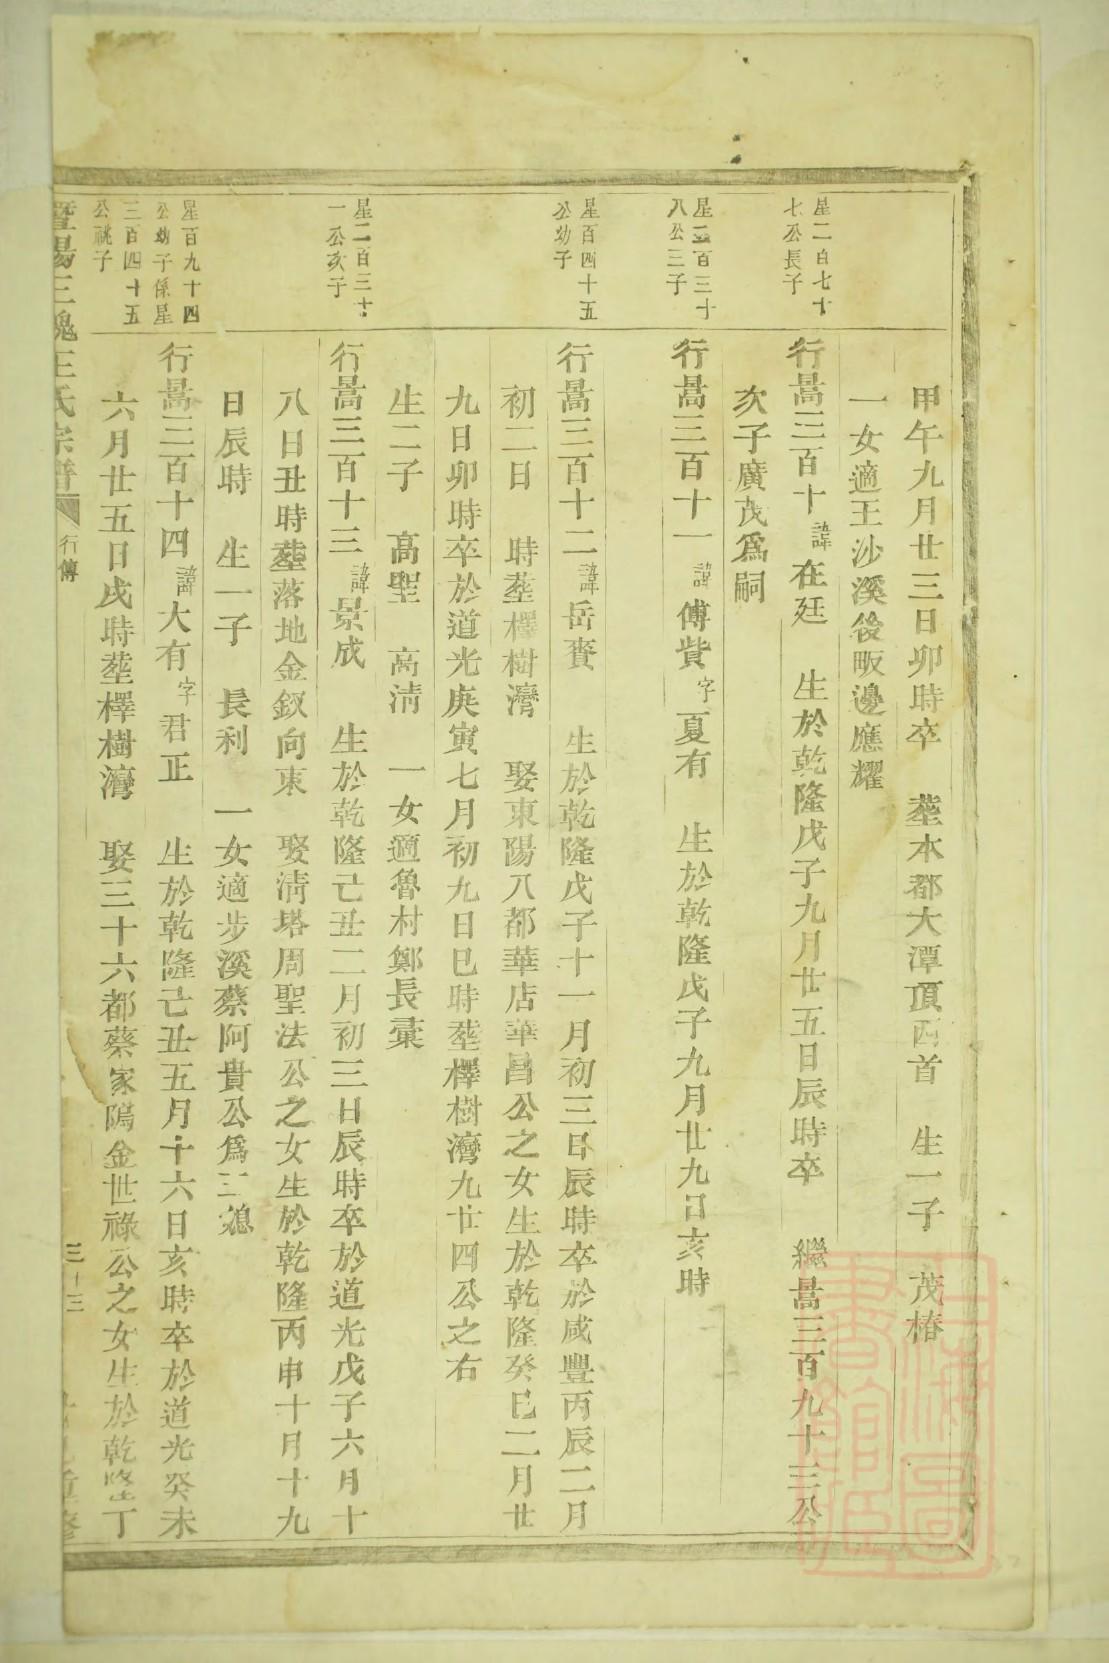 甲午九月廿三日卯時卒　塟本都大潭頂西首　生一子　茂椿
一女適王沙溪後畈邊應耀
星二百七十
七公長子
行暠三百十諱在廷　生於乾隆戊子九月廿五日辰時卒　繼暠三百九十三公
次子廣茂爲嗣
星二百三十
八公三子
行暠三百十一諱傅貲字夏有　生於乾隆戊子九月廿九日亥時
星百四十五
公幼子
行暠三百十二諱岳賚　生於乾隆戊子十一月初三日辰時卒於咸豐丙辰二月
初二日　時塟檡樹灣　娶東陽八都華店華昌公之女生於乾隆癸巳二月廿
九日卯時卒於道光庚寅七月初九日巳時塟檡樹灣九廿四公之右
生二子　高聖　高清　一女適魯村鄭長彙
星二百三十
一公亥子
行暠三百十三諱景成　生於乾隆己丑二月初三日辰時卒於道光戊子六月十
八日丑時塟落地金釵向東　娶清塔周聖法公之女生於乾隆丙申十月十九
日辰時　生一子　長利　一女適步溪蔡阿貴公爲三媳
星百九十四
公幼子係星
三百四十五
公祧子
行暠三百十四諱大有字君正　生於乾隆己丑五月十六日亥時卒於道光癸未
六月廿五日戌時塟檡樹灣　娶三十六都蔡家隖金世祿公之女生於乾隆丁
暨陽三槐王氏宗譜　行傳　重修
上海圖書館藏